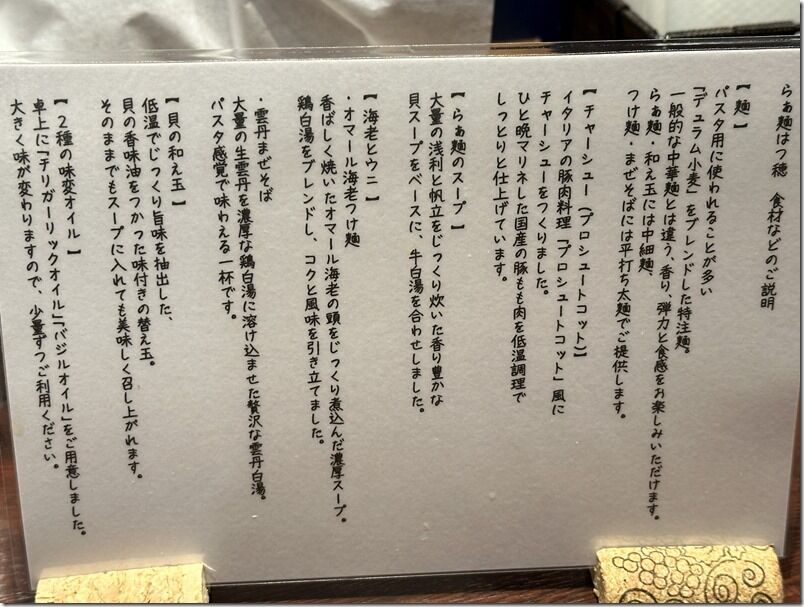 らぁ麺はつ穂　食材などのご説明
【 麺 】
パスタ用に使われることが多い
「デュラム小麦」をブレンドした特注麺。
一般的な中華麺とは違う、香り、弾力と食感をお楽しみいただけます。
らぁ麺・和え玉には中細麺、
つけ麺・まぜそばには平打ち太麺でご提供します。
【 チャーシュー（プロシュートコット）】
イタリアの豚肉料理「プロシュートコット」風に
チャーシューをつくりました。
ひと晩マリネした国産の豚もも肉を低温調理で
しっとりと仕上げています。
【 らぁ麺のスープ 】
大量の浅利と帆立をじっくり炊いた香り豊かな
貝スープをベースに、牛白湯を合わせしました。
【 海老とウニ 】
・オマール海老つけ麺
香ばしく焼いたオマール海老の頭をじっくり煮込んだ濃厚スープ。
鶏白湯をブレンドし、コクと風味を引き立てました。
・雲丹まぜそば
大量の生雲丹を濃厚な鶏白湯に溶け込ませた贅沢な雲丹白湯。
パスタ感覚で味わえる一杯です。
【 貝の和え玉 】
低温でじっくり旨味を抽出した、
貝の香味油をつかった味付きの替え玉。
そのままでもスープに入れても美味しく召し上がれます。
【 2種の味変オイル 】
卓上に「チリガーリックオイル」「バジルオイル」をご用意しました。
大きく味が変わりますので、少量ずつご利用ください。